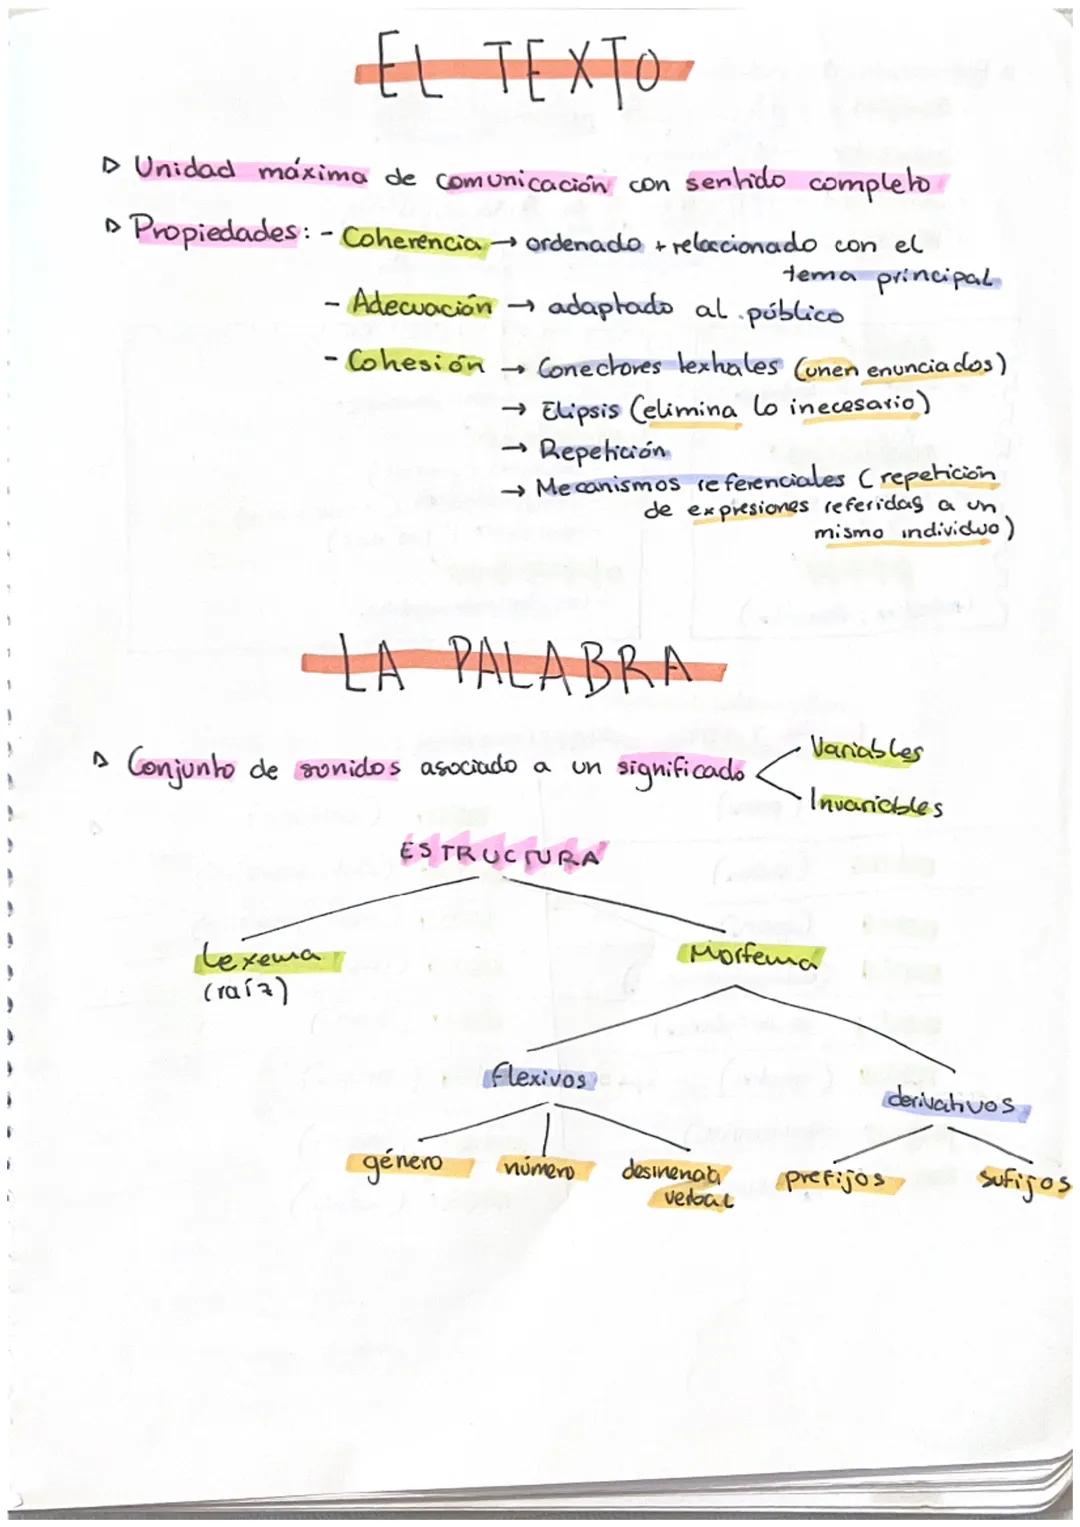 EL TEXTO
▷ Unidad máxima de comunicación con sentido completo
▷ Propiedades: - Coherencia → ordenado + relacionado con el
tema principal
- Adecuación → adaptado al público
- Cohesión → Conectores textuales (unen enunciados)
→ Elipsis (elimina lo inecesario)
→ Repetición
→ Mecanismos referenciales (repetición
de expresiones referidas a un
mismo individuo)
LA PALABRA
▷ Conjunto de sonidos asociado a un significado
Variables
Invariables
ESTRUCTURA
Lexema
(raíz)
Morfema
flexivos
derivativos
género
número
desinencia
verbal
prefijos
sufijos